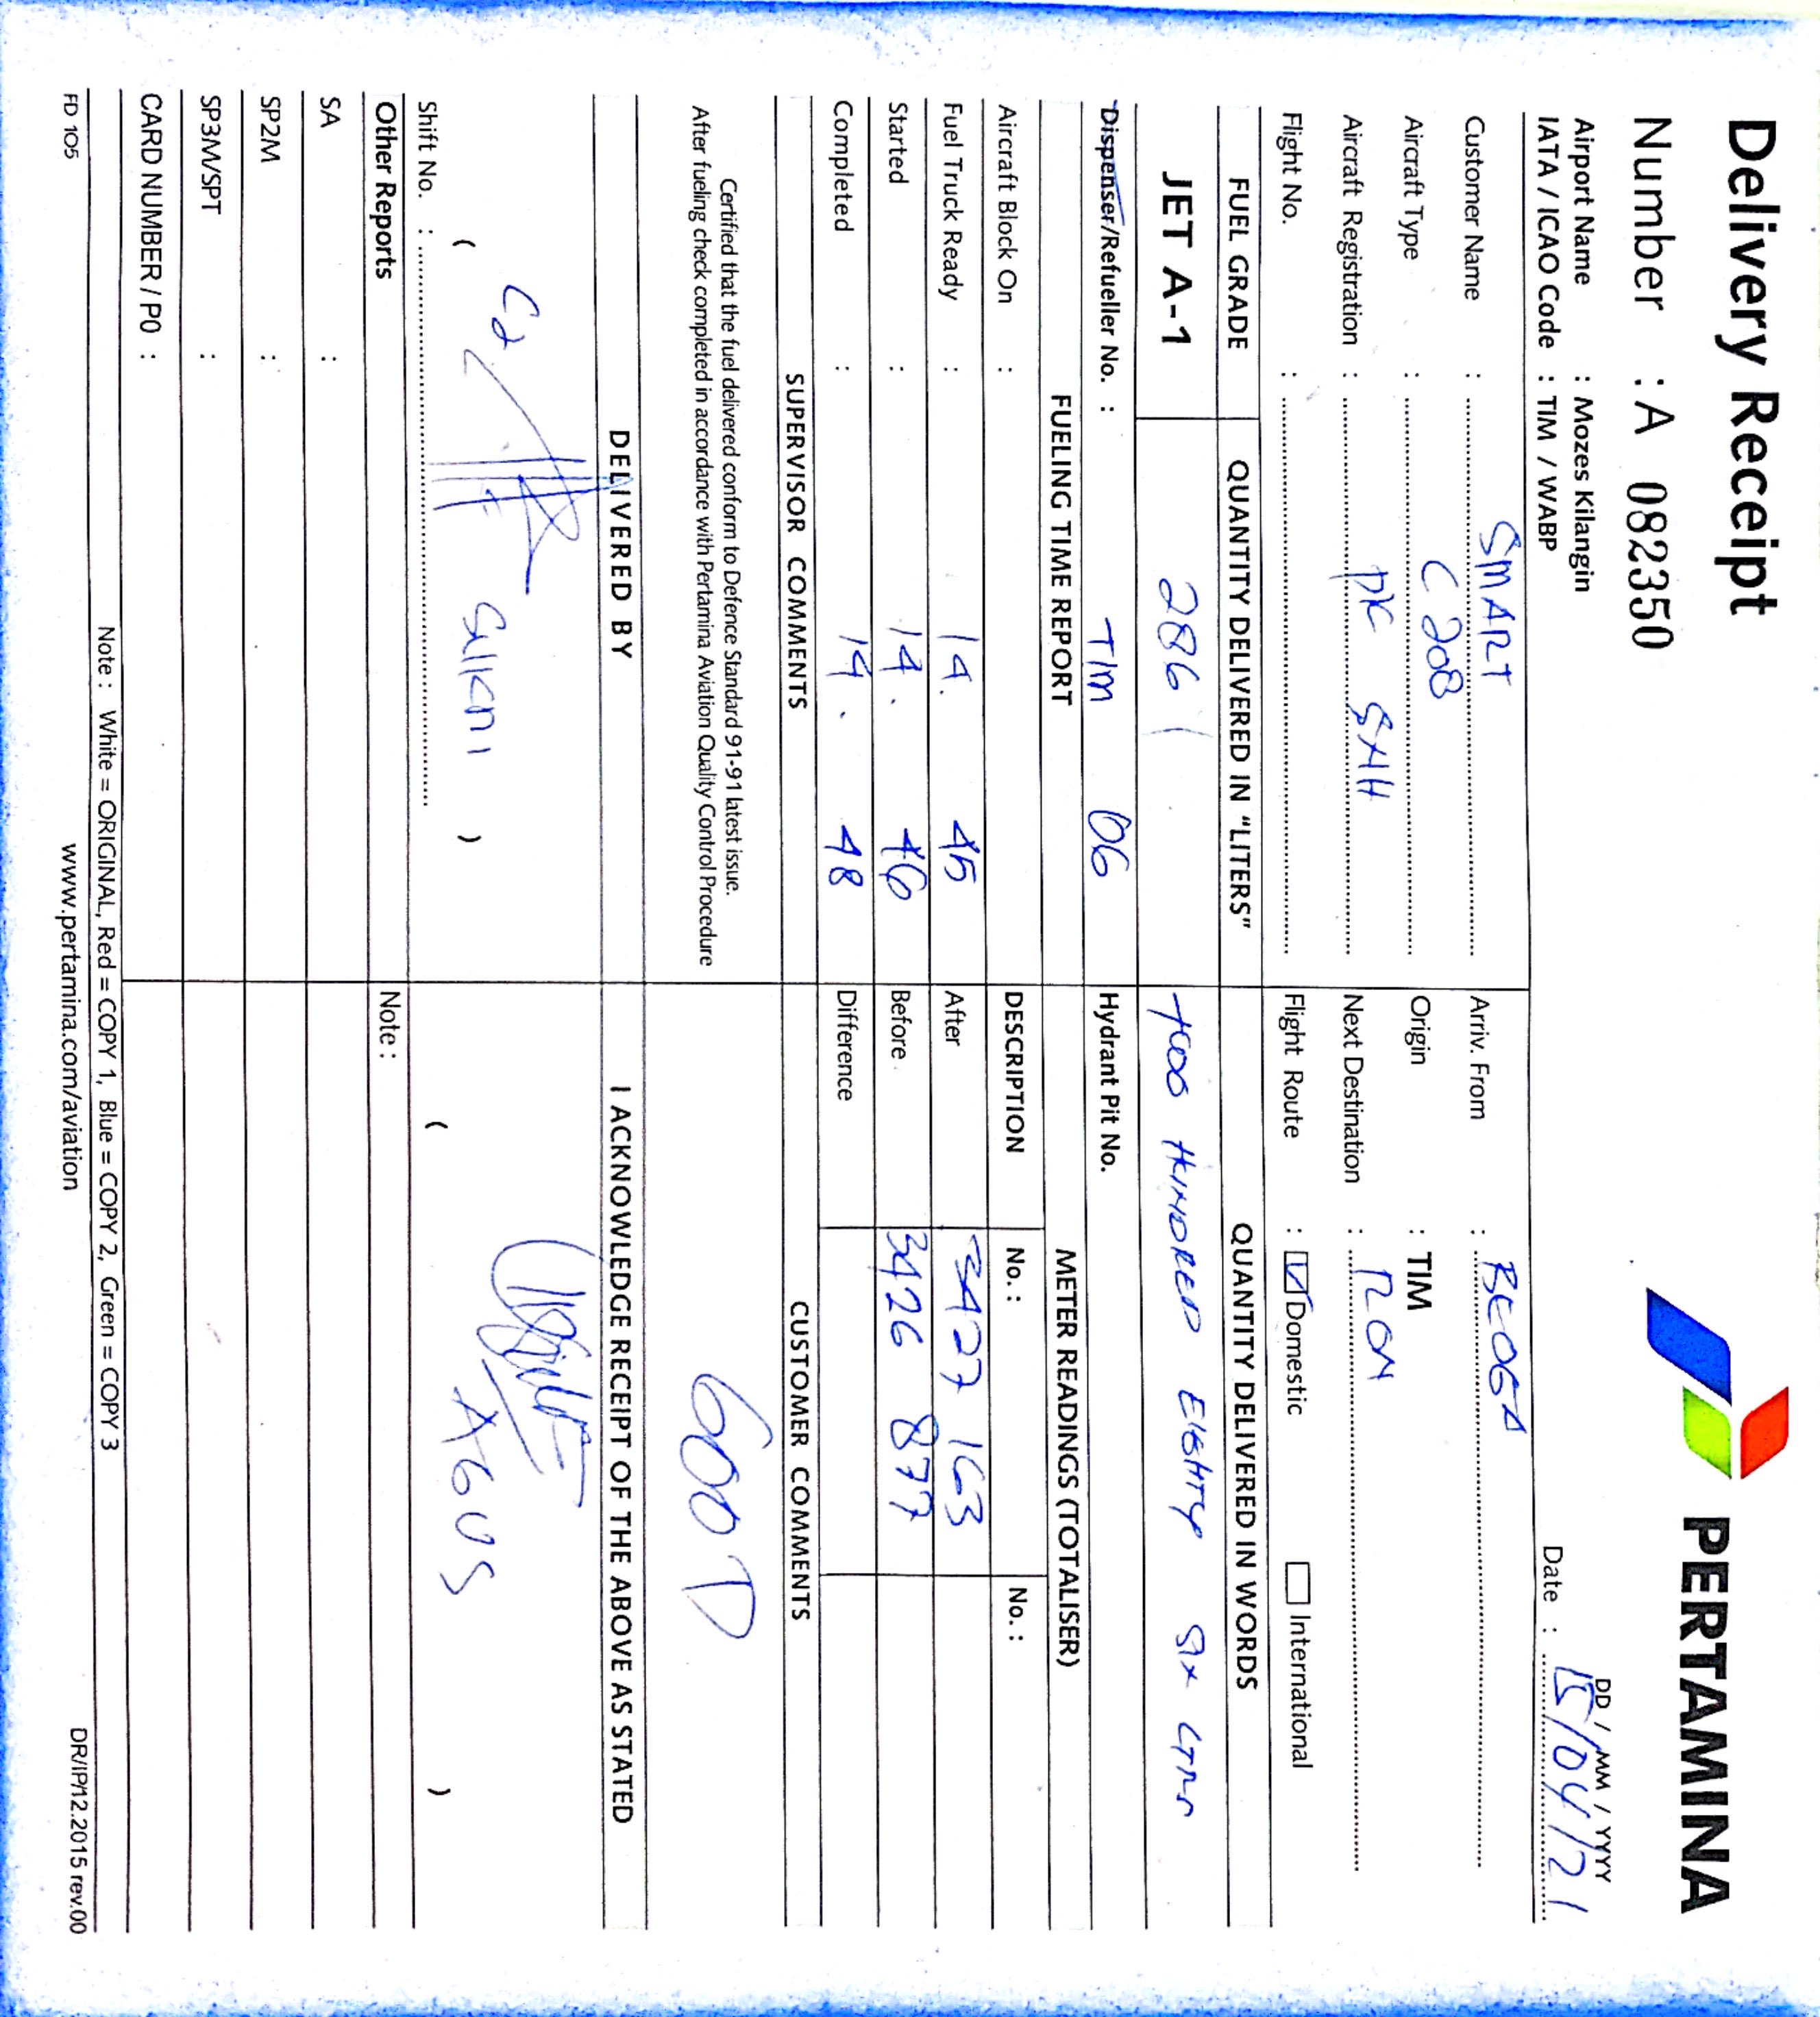 Delivery Receipt
PERTAMINA
Number : A 082350
DD / MM / YYYY
Date : 15/04/21
Airport Name : Mozes Kilangin
IATA / ICAO Code : TIM / WABP
Customer Name : SMART
Arriv. From : BEOGA
Aircraft Type : C 208
Origin : TIM
Aircraft Registration : PK
Next Destination :
Flight No. :
Flight Route : Domestic International
FUEL GRADE QUANTITY DELIVERED IN "LITERS" QUANTITY DELIVERED IN WORDS
JET A-1 286 HUNDRED EIGHTY SIX
Dispenser/Refueller No. : TIM 06 Hydrant Pit No.
FUELING TIME REPORT METER READINGS (TOTALISER)
Aircraft Block On : DESCRIPTION No. : No. :
Fuel Truck Ready : 14. 45 After 3427 163
Started : 14. 46 Before 3426 877
Completed : 14. 48 Difference
SUPERVISOR COMMENTS CUSTOMER COMMENTS
Certified that the fuel delivered conform to Defence Standard 91-91 latest issue.
After fueling check completed in accordance with Pertamina Aviation Quality Control Procedure
GOOD
DELIVERED BY I ACKNOWLEDGE RECEIPT OF THE ABOVE AS STATED
( )
( AGUS )
Shift No. :
Other Reports Note :
SA :
SP2M :
SP3M/SPT :
CARD NUMBER / PO :
Note : White = ORIGINAL, Red = COPY 1, Blue = COPY 2, Green = COPY 3
FD 105 www.pertamina.com/aviation DR/IP/12.2015 rev.00